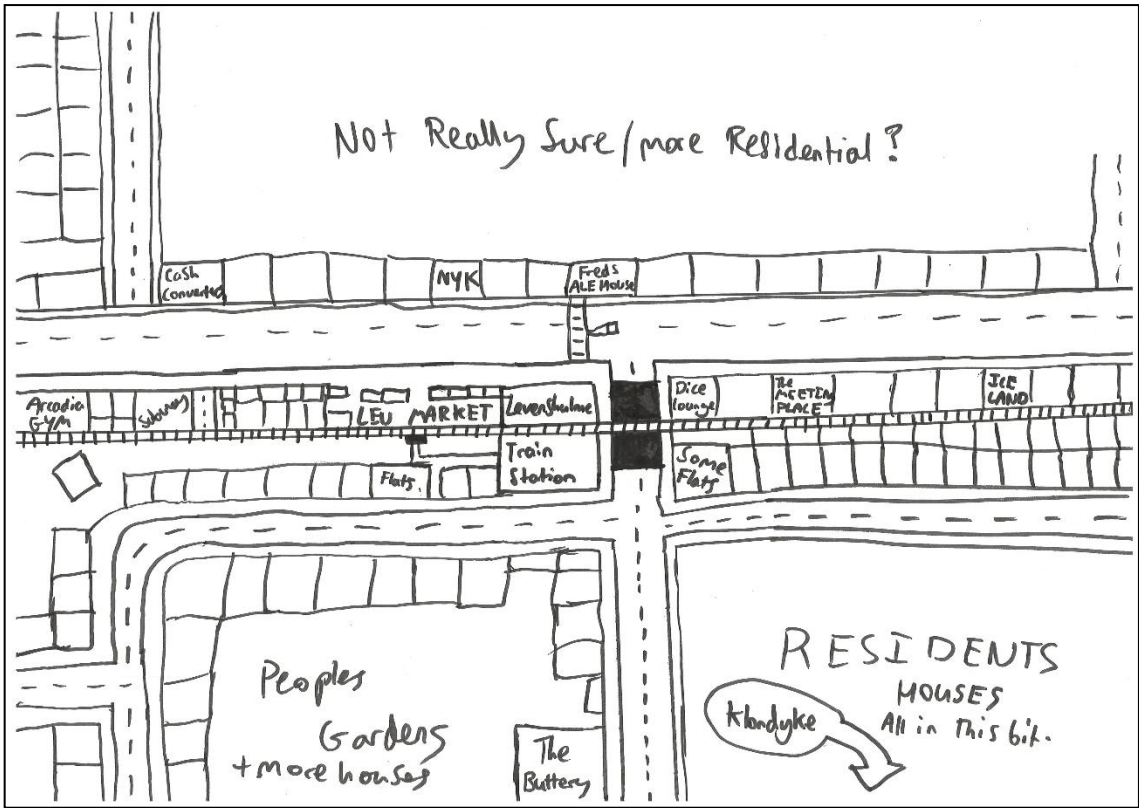 Not Really Sure/more Residential?
Cash
Converted
NYK
Freds
ALE HOUSE
Arcadia
GYM
Subway
LEV MARKET
Levenshulme
Train
Station
Dice
lounge
The
MEETIN
PLACE
ICE
LAND
Flats.
Some
Flats
Peoples
Gardens
+ more houses
The
Buttery
RESIDENTS
HOUSES
All in This bit.
Klondyke